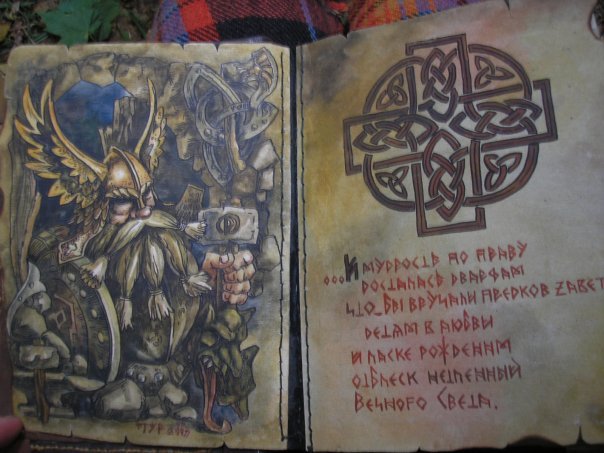 ...И мудрость по праву
досталась дварфам
что_бы вручали предков завет
детям в любви
и ласке рожденным
отблеск нетленный
Вечного Света.